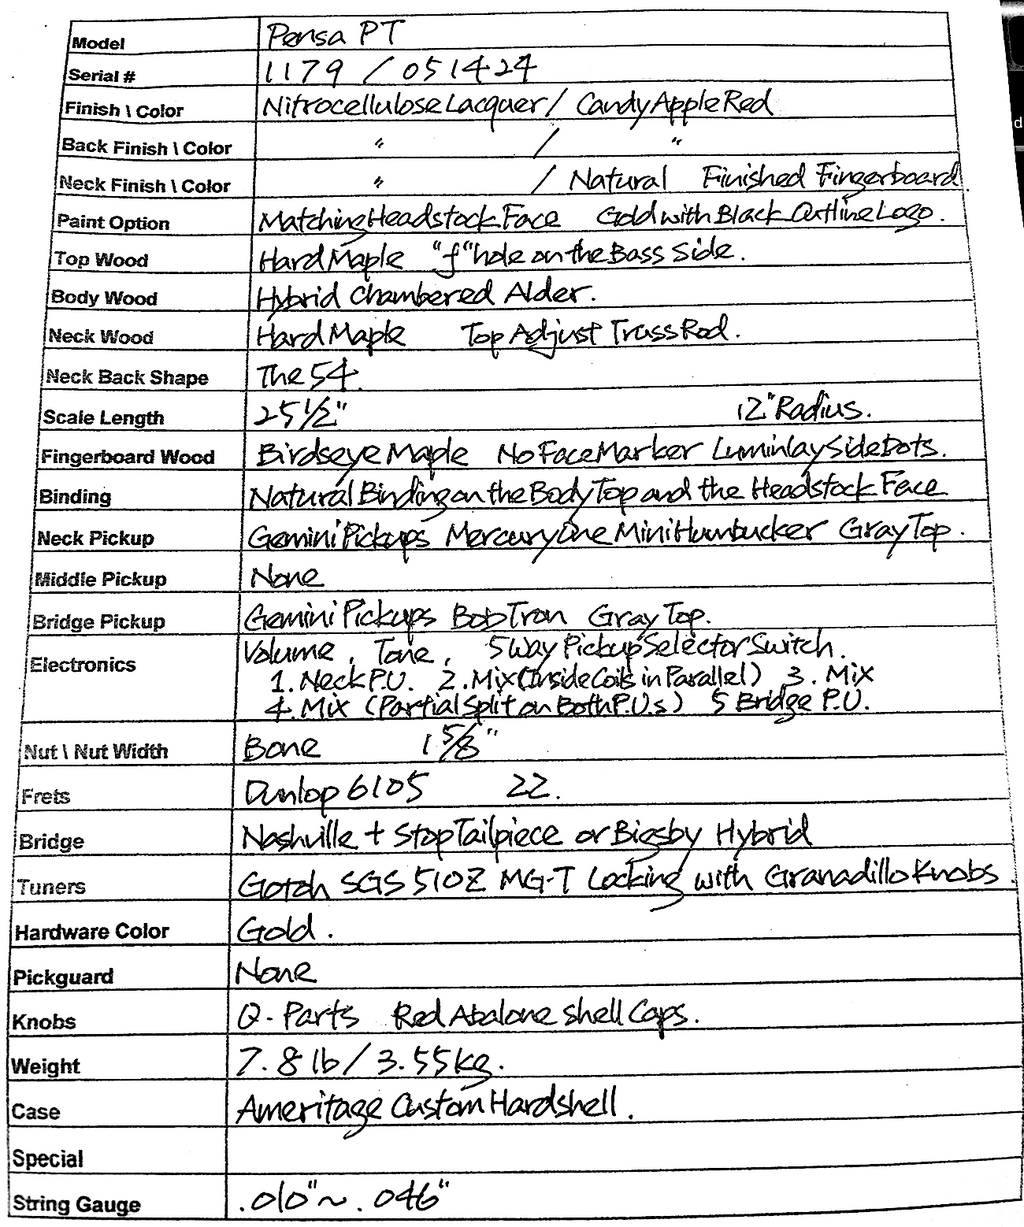 Model Pensa PT
Serial # 1179 / 051424
Finish \ Color Nitrocellulose Lacquer / Candy Apple Red
Back Finish \ Color " / "
Neck Finish \ Color " / Natural Finished Fingerboard.
Paint Option Matching Headstock Face Gold with Black Outline Logo.
Top Wood Hard Maple "f" hole on the Bass Side.
Body Wood Hybrid Chambered Alder.
Neck Wood Hard Maple Top Adjust Truss Rod.
Neck Back Shape The 54.
Scale Length 25 1/2" 12" Radius.
Fingerboard Wood Birdseye Maple No Face Marker Luminlay Side Dots.
Binding Natural Binding on the Body Top and the Headstock Face
Neck Pickup Gemini Pickups Mercury One Mini Humbucker Gray Top.
Middle Pickup None
Bridge Pickup Gemini Pickups Bob Tron Gray Top.
Electronics Volume, Tone, 5 Way Pickup Selector Switch.
1. Neck P.U. 2. Mix (Inside Coils in Parallel) 3. Mix
4. Mix (Partial Split on Both P.U.s) 5 Bridge P.U.
Nut \ Nut Width Bone 1 5/8"
Frets Dunlop 6105 22.
Bridge Nashville + Stop Tailpiece or Bigsby Hybrid
Tuners Gotoh SGS 510Z MG-T Locking with Granadillo Knobs.
Hardware Color Gold.
Pickguard None
Knobs Q-Parts Red Abalone Shell Caps.
Weight 7.8 lb / 3.55 kg.
Case Ameritage Custom Hardshell.
Special
String Gauge .010" ~ .046"
d